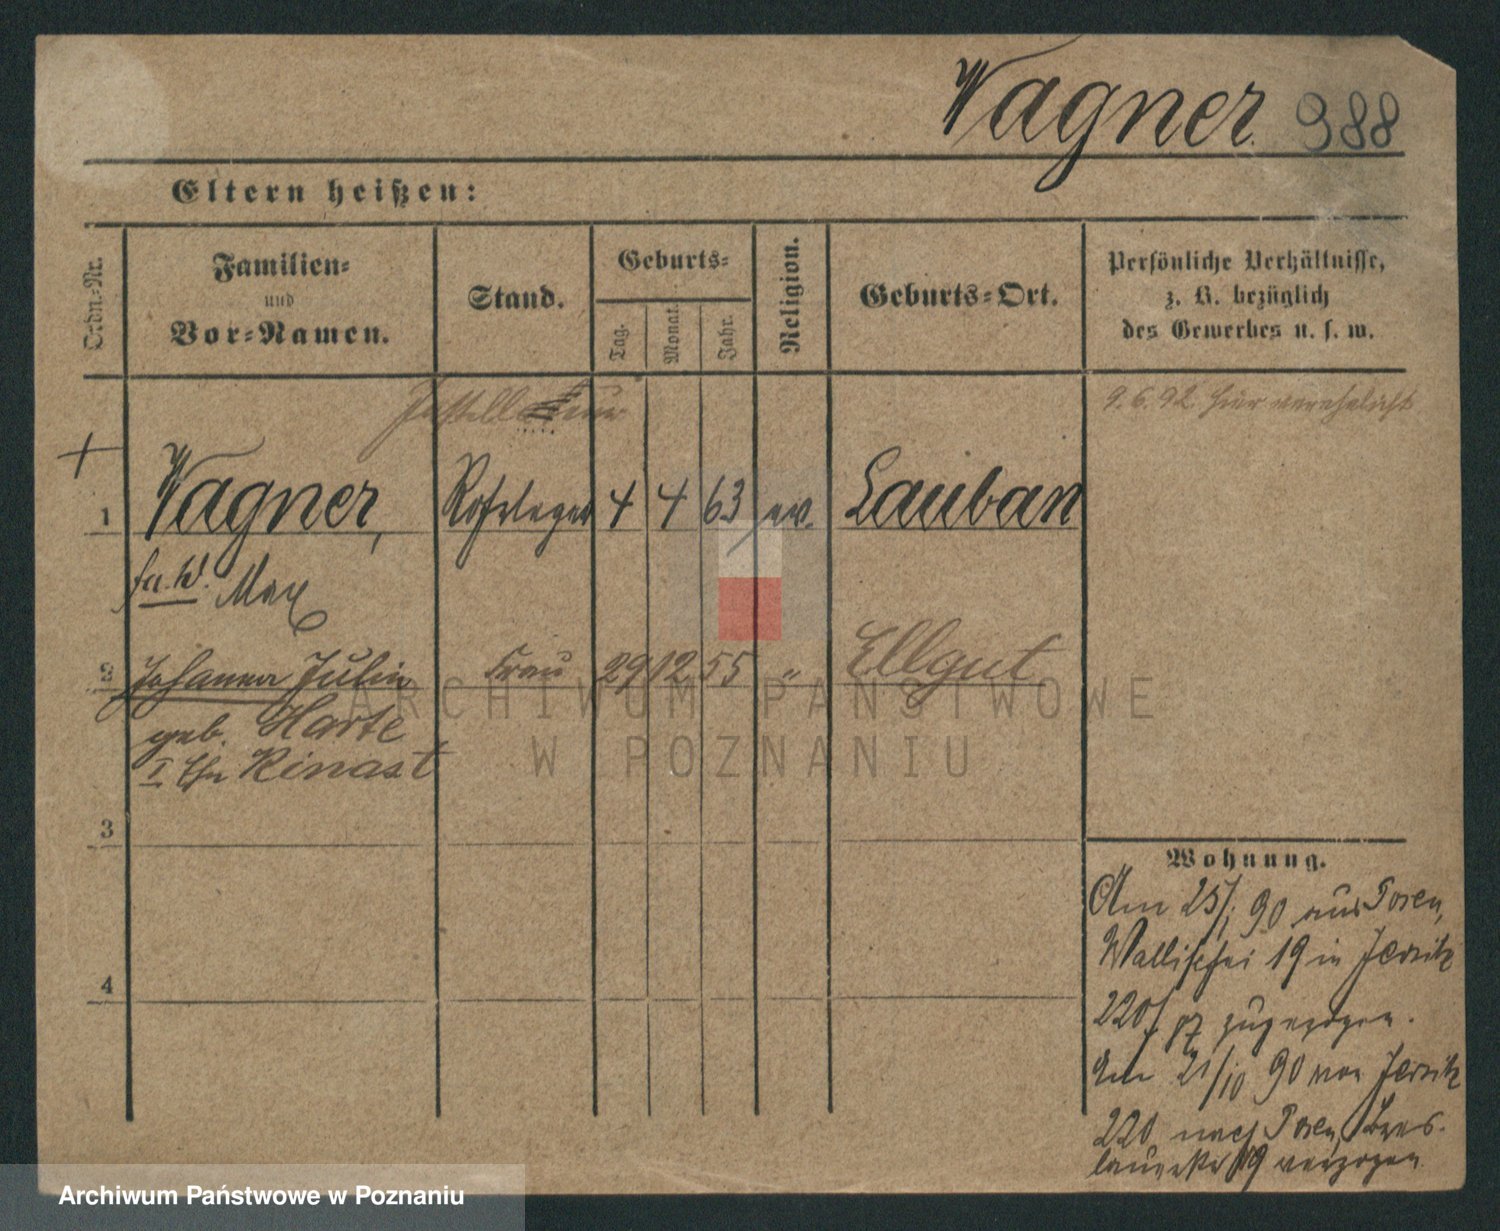 Wagner 388
Eltern heißen:
Ordn.-Nr.
Familien-
und
Vor-Namen.
Stand.
Geburts-
Tag.
Monat.
Jahr.
Religion.
Geburts-Ort.
Persönliche Verhältnisse,
z. B. bezüglich
des Gewerbes u. s. w.
9.6.92. hier verehelicht
1 Wagner, Rohrleger 4 4 63 ev. Lauban
Max
2 Johanna Julie Frau 29 12 55 " Ellgut
geb. Harte
I Ehe Kinast
3
4
Wohnung.
Am 25/1 90 aus Posen,
Wallischei 19 in Jersitz
220 zugezogen.
Am 21/10 90 von Jersitz
220 nach Posen, Bres-
lauerstr 19 verzogen
ARCHIWUM PAŃSTWOWE
W POZNANIU
Archiwum Państwowe w Poznaniu